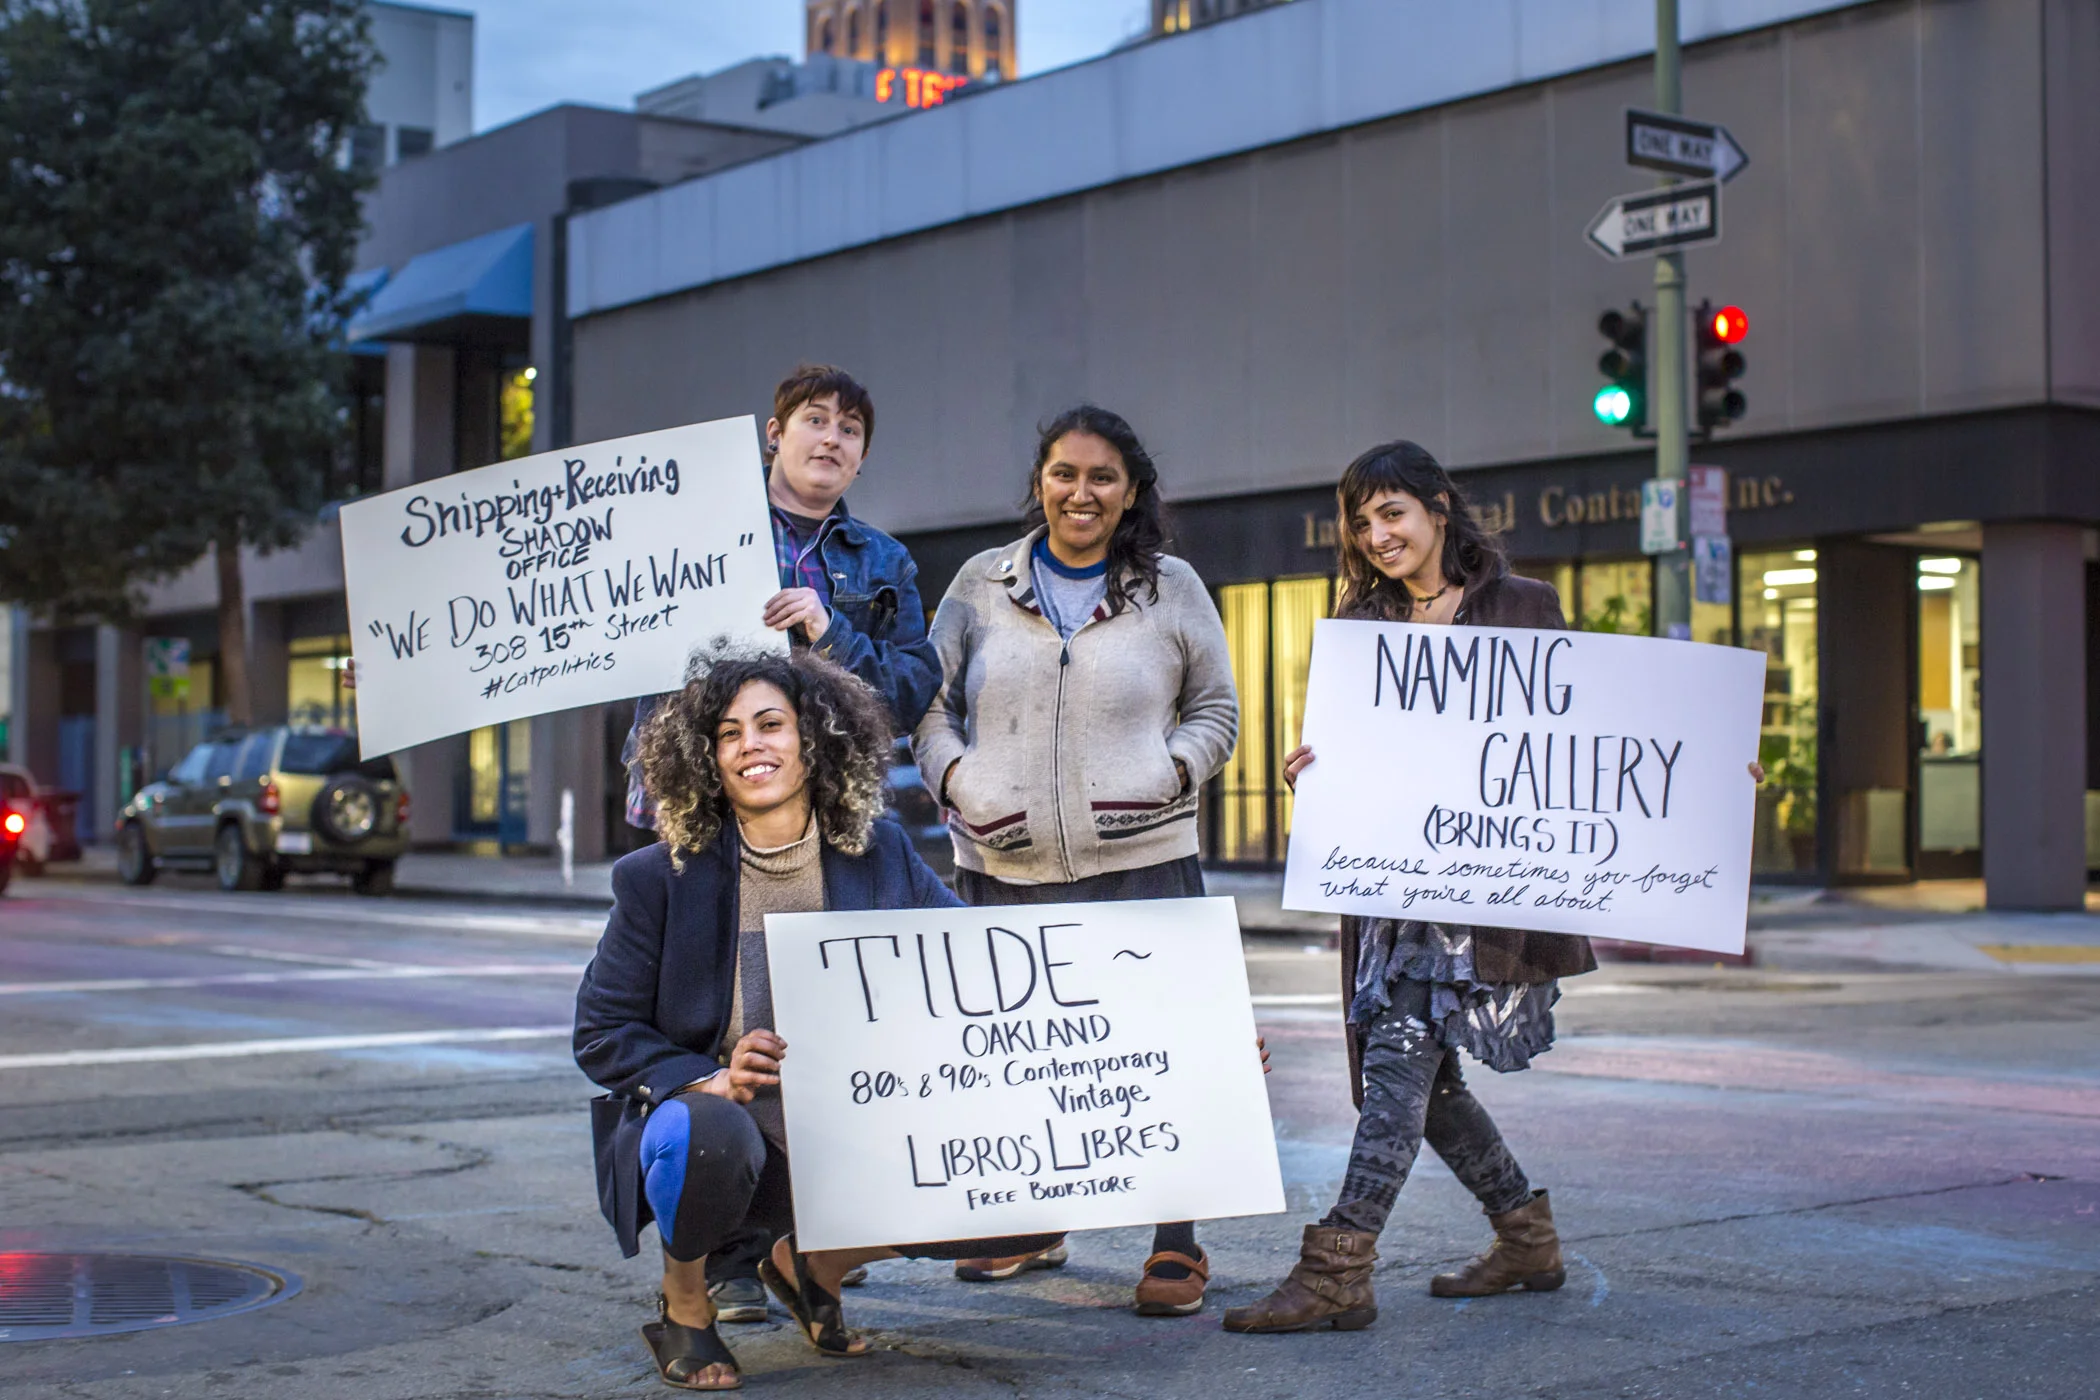 ONE WAY
ONE WAY
Shipping+Receiving
SHADOW
OFFICE
"WE DO WHAT WE WANT"
308 15th Street
#Catpolitics
Inc.
NAMING
GALLERY
(BRINGS IT)
because sometimes you forget
what you're all about.
TILDE ~
OAKLAND
80's & 90's Contemporary
Vintage
LIBROS LIBRES
FREE BOOKSTORE